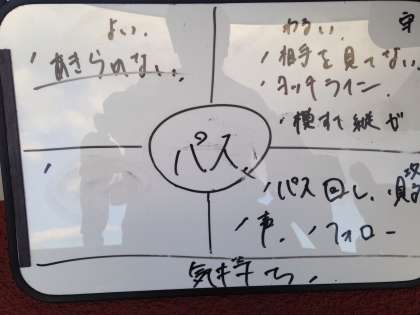 よい.
・あきらめない.
わるい.
・相手を見てない.
・タッチライン.
・横すて縦が
パス
・パス回し,
・事. ・フォロー
気持ち.